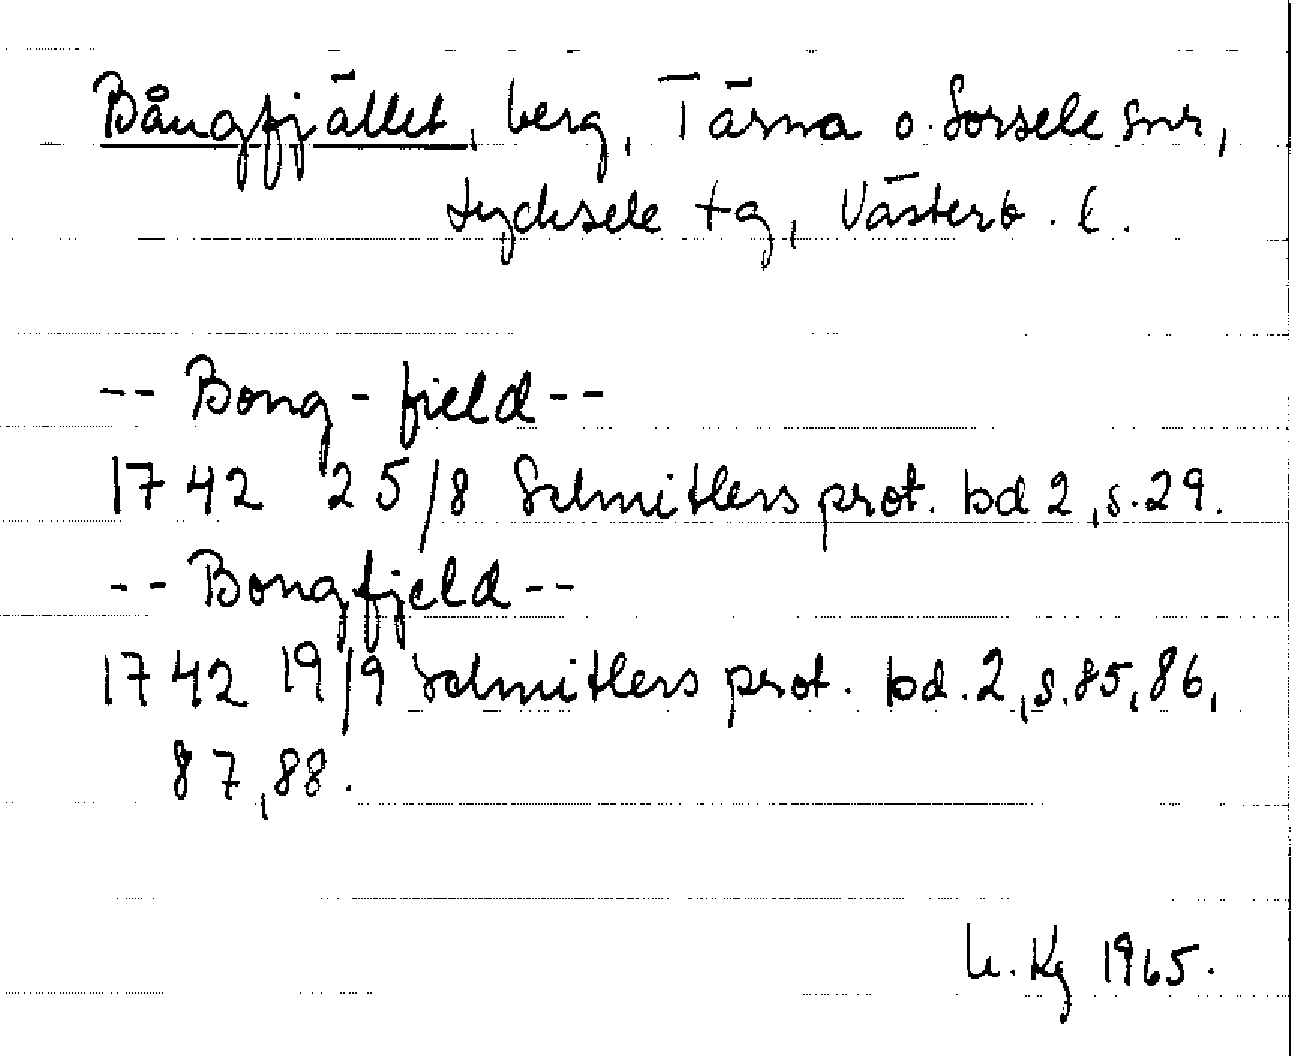 Bångfjället, berg, Tärna o. Sorsele snr,
Lycksele tg, Västerb. l.
-- Bong-field --
1742 25/8 Schnitlers prot. bd 2, s. 29.
-- Bongfjeld --
1742 19/9 Schnitlers prot. bd. 2, s. 85, 86,
87, 88.
U. Kg 1965.